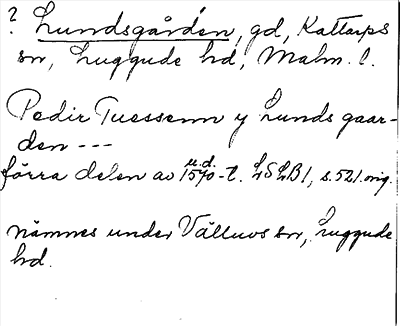 ? Lundsgården, gd, Kattarps
sn, Luggude hd, Malm. l.
Pedir Tuessenn y Lunds gaar-
den ---
u.d.
förra delen av 1570-t. LSLB 1, s. 521. orig.
nämnes under Välluvs sn, Luggude
hd.